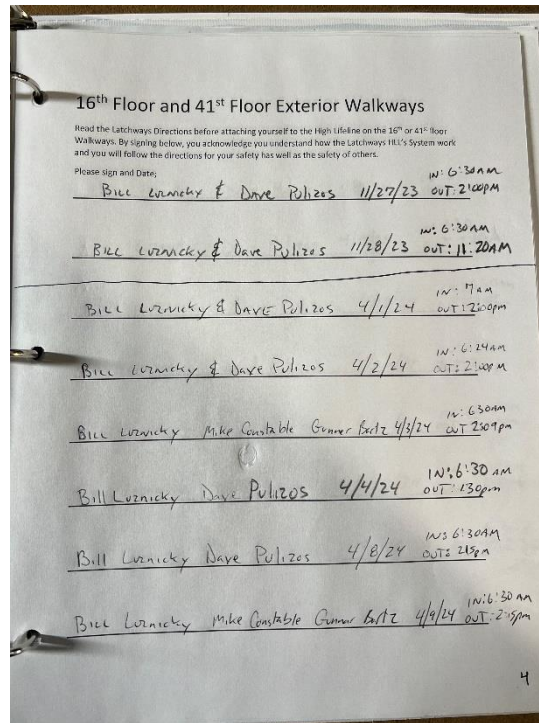 16th Floor and 41st Floor Exterior Walkways
Read the Latchways Directions before attaching yourself to the High Lifeline on the 16th or 41st floor
Walkways. By signing below, you acknowledge you understand how the Latchways HLL's System work
and you will follow the directions for your safety has well as the safety of others.
Please sign and Date;
IN: 6:30AM
Bill Luznicky & Dave Pulizos 11/27/23 OUT: 2:00PM
IN: 6:30AM
Bill Luznicky & Dave Pulizos 11/28/23 OUT: 11:20AM
IN: 7AM
Bill Luznicky & DAVE Pulizos 4/1/24 OUT: 2:00pm
IN: 6:24AM
Bill Luznicky & Dave Pulizos 4/2/24 OUT: 2:00PM
IN: 630AM
Bill Luznicky Mike Constable Gunnar 4/3/24 OUT 2:09pm
IN: 6:30 AM
Bill Luznicky Dave Pulizos 4/4/24 OUT: 130pm
IN: 6:30AM
Bill Luznicky Dave Pulizos 4/8/24 OUT: 215pm
IN: 6:30 AM
Bill Luznicky Mike Constable Gunnar 4/9/24 OUT: 2:15pm
4